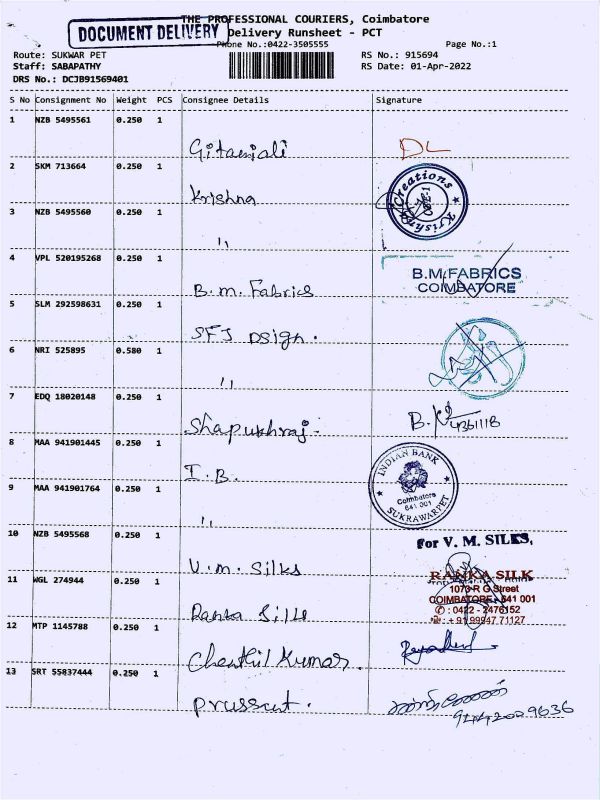 THE PROFESSIONAL COURIERS, Coimbatore
DOCUMENT DELIVERY
Delivery Runsheet - PCT
Phone No.:0422-3505555
Page No.:1
Route: SUKWAR PET
RS No.: 915694
Staff: SABAPATHY
RS Date: 01-Apr-2022
DRS No.: DCJB91569401
S No Consignment No Weight PCS Consignee Details Signature
1 NZB 5495561 0.250 1
Gitanjali DL
2 SKM 713664 0.250 1
Krishna
Krishna Creations CBE-1
3 NZB 5495560 0.250 1
"
4 VPL 520195268 0.250 1
B.m. Fabrics
B.M.FABRICS
COIMBATORE
5 SLM 292598631 0.250 1
SFJ Dsign.
6 NRI 525895 0.580 1
"
7 EDQ 18020148 0.250 1
Shapukhraj.
8 MAA 941901445 0.250 1
I.B.
INDIAN BANK
Coimbatore
641 001
SUKRAWARPET
9 MAA 941901764 0.250 1
"
10 NZB 5495568 0.250 1
V.m. Silks
For V. M. SILKS,
11 WGL 274944 0.250 1
Ranka Silk
RANKA SILK
1073-R G Street
COIMBATORE - 641 001
✆ : 0422 - 2476152
+ 91 99947 71127
12 MTP 1145788 0.250 1
Chenthil Kumar.
13 SRT 55837444 0.250 1
prussut.
9442009636